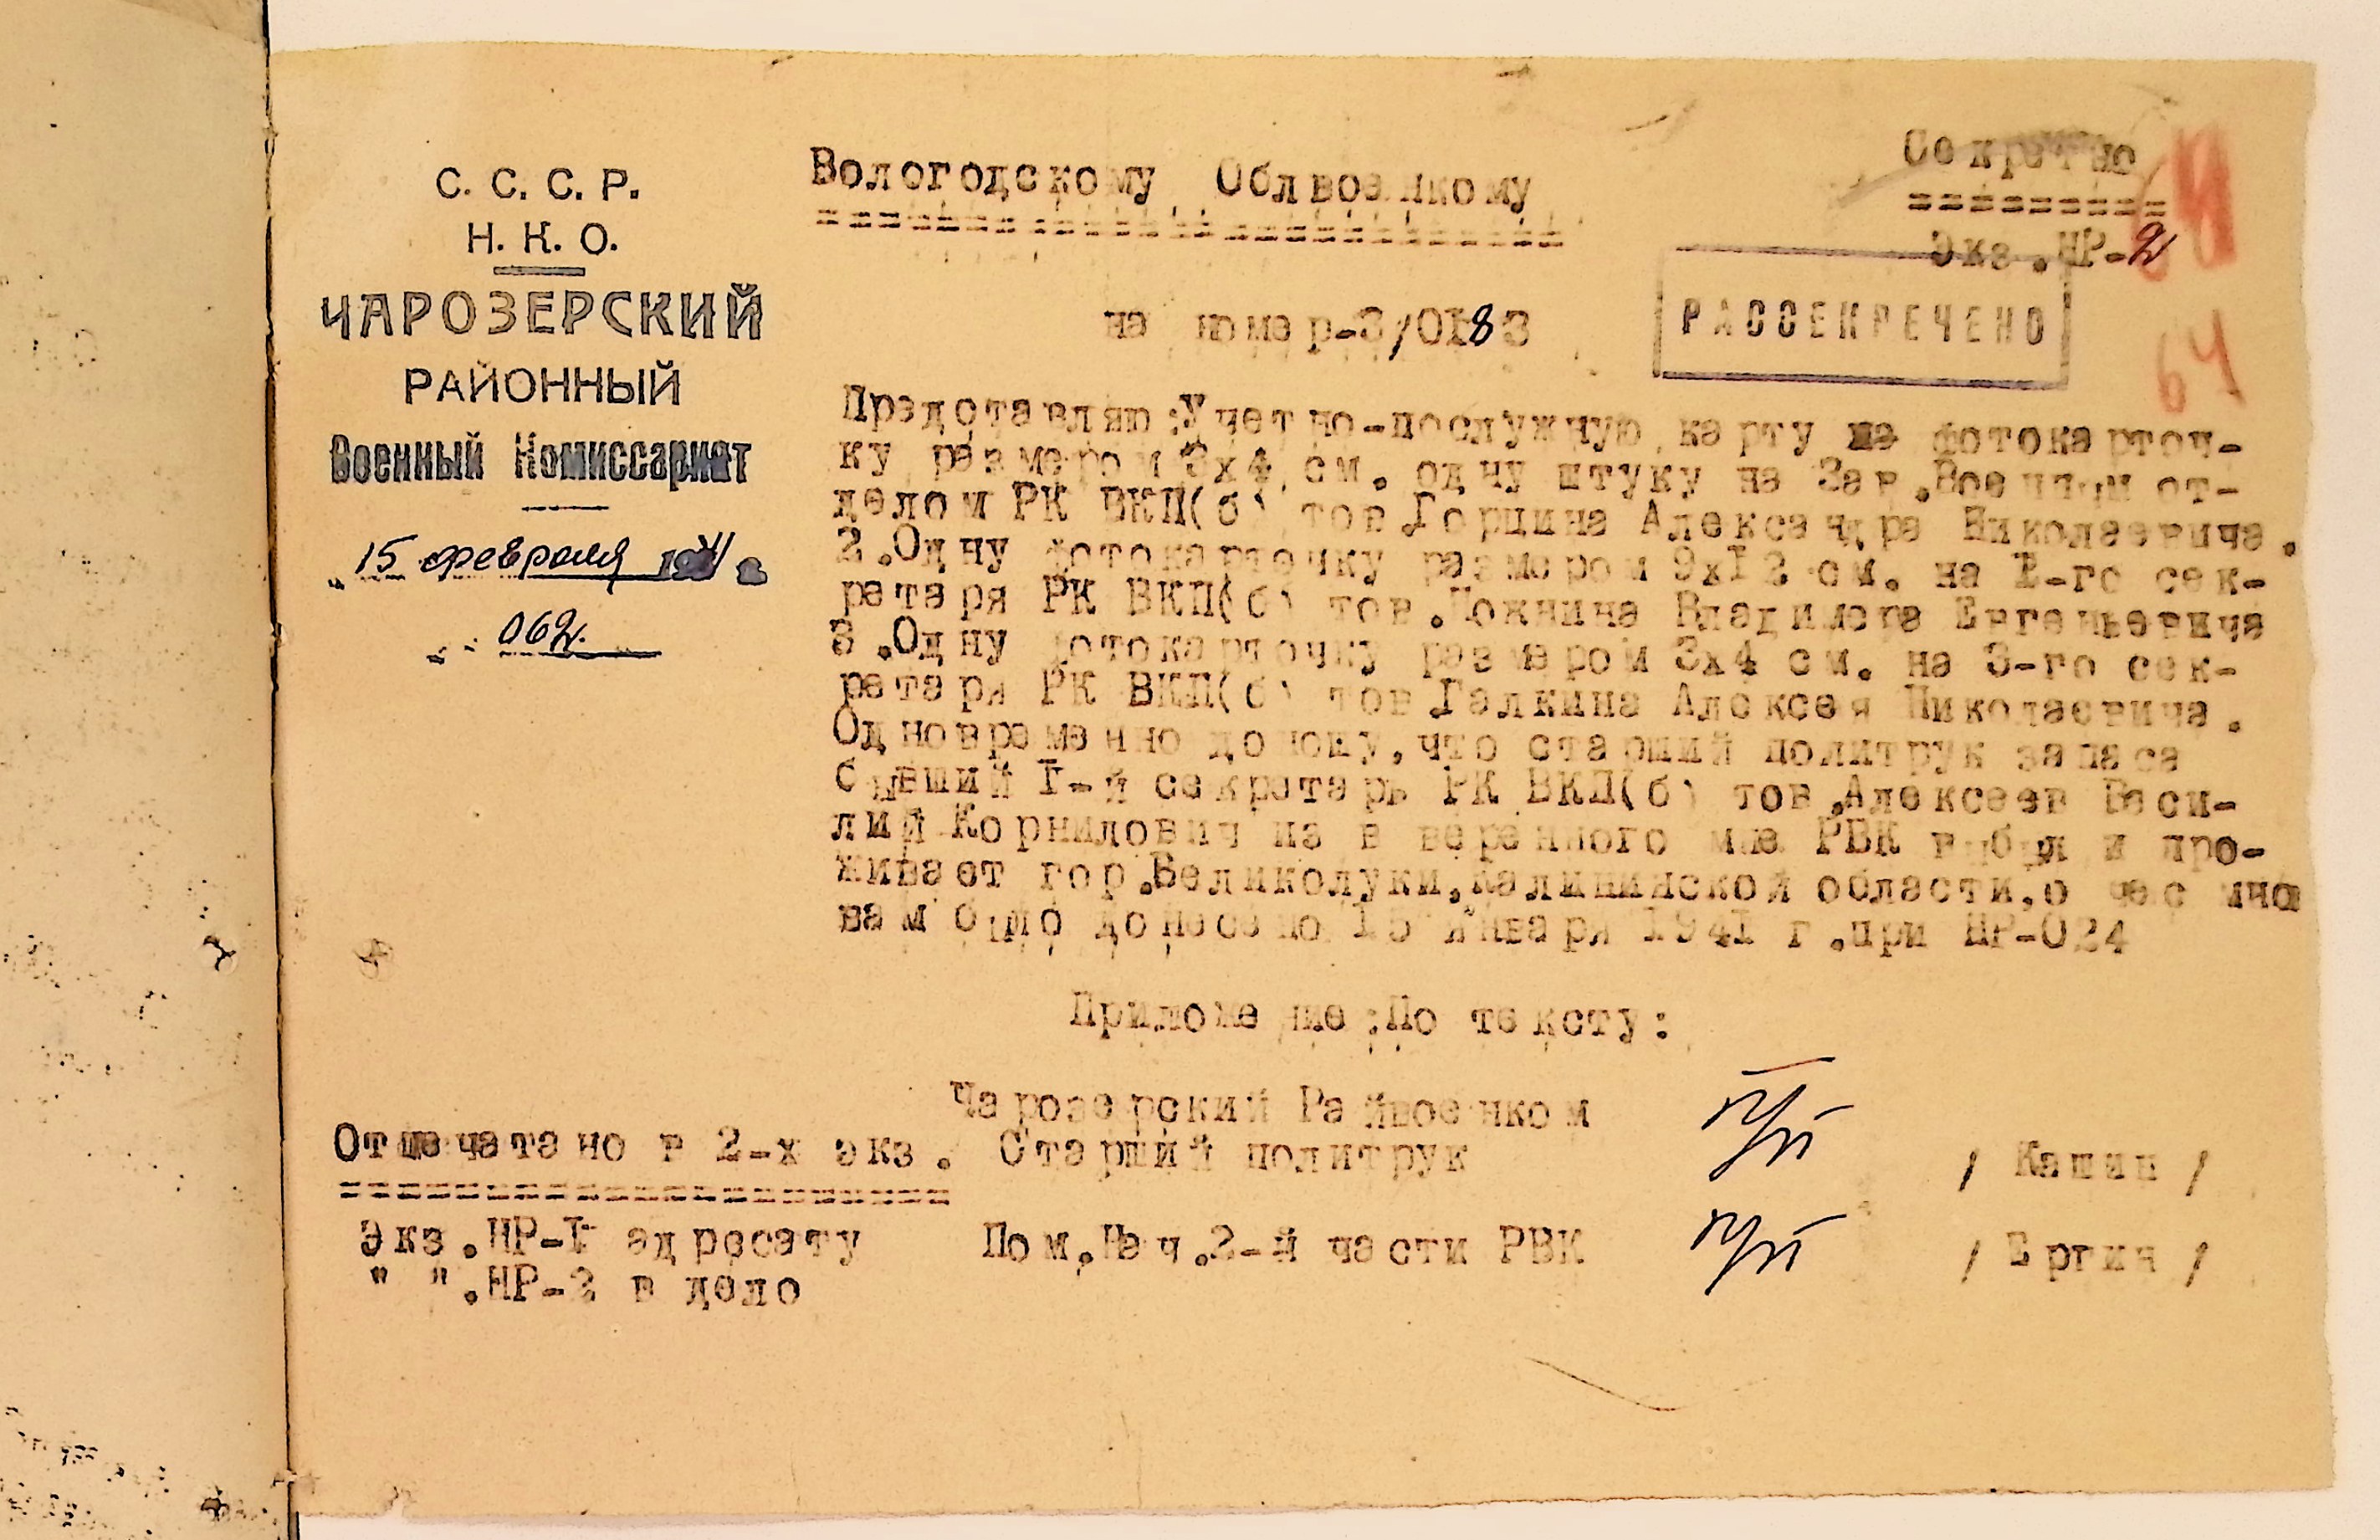 С. С. С. Р.
Н. К. О.
ЧАРОЗЕРСКИЙ
РАЙОННЫЙ
Военный Комиссариат
"15 февраля 1941 г.
062.
Вологодскому Облвоенкому
Секретно
Экз.НР-2
на номер-3/0183
РАССЕКРЕЧЕНО
64
Представляю:Учетно-послужную карту на фотокарточ-
ку размером 3х4 см. одну штуку на Зав.Военным от-
делом РК ВКП(б) тов.Горцина Александра Николаевича.
2.Одну фотокарточку размером 9х12 см. на I-го сек-
ратаря РК ВКП(б) тов. Владимера Евгеньевича
3.Одну фотокарточку размером 3х4 см. на 3-го сек-
ратаря РК ВКП(б) тов.Галкина Алексея Николаевича.
Одновременно доношу,что старший политрук запаса
бывший I-й секретарь РК ВКП(б) тов.Алексеев Васи-
лий Корнилович из вверенного мне РВК выбыл и про-
живает гор.Великолуки,Калининской области,о чес мною
вам было донесено 15 января 1941 г.при НР-024
Приложение:По тексту:
Чарозерский Райвоенком
Старший политрук п/п / Кашин /
Отпечатано в 2-х экз.
Экз.НР-I адресату
" ".НР-2 в дело
Пом.Нач.2-й части РВК п/п / Ергин /